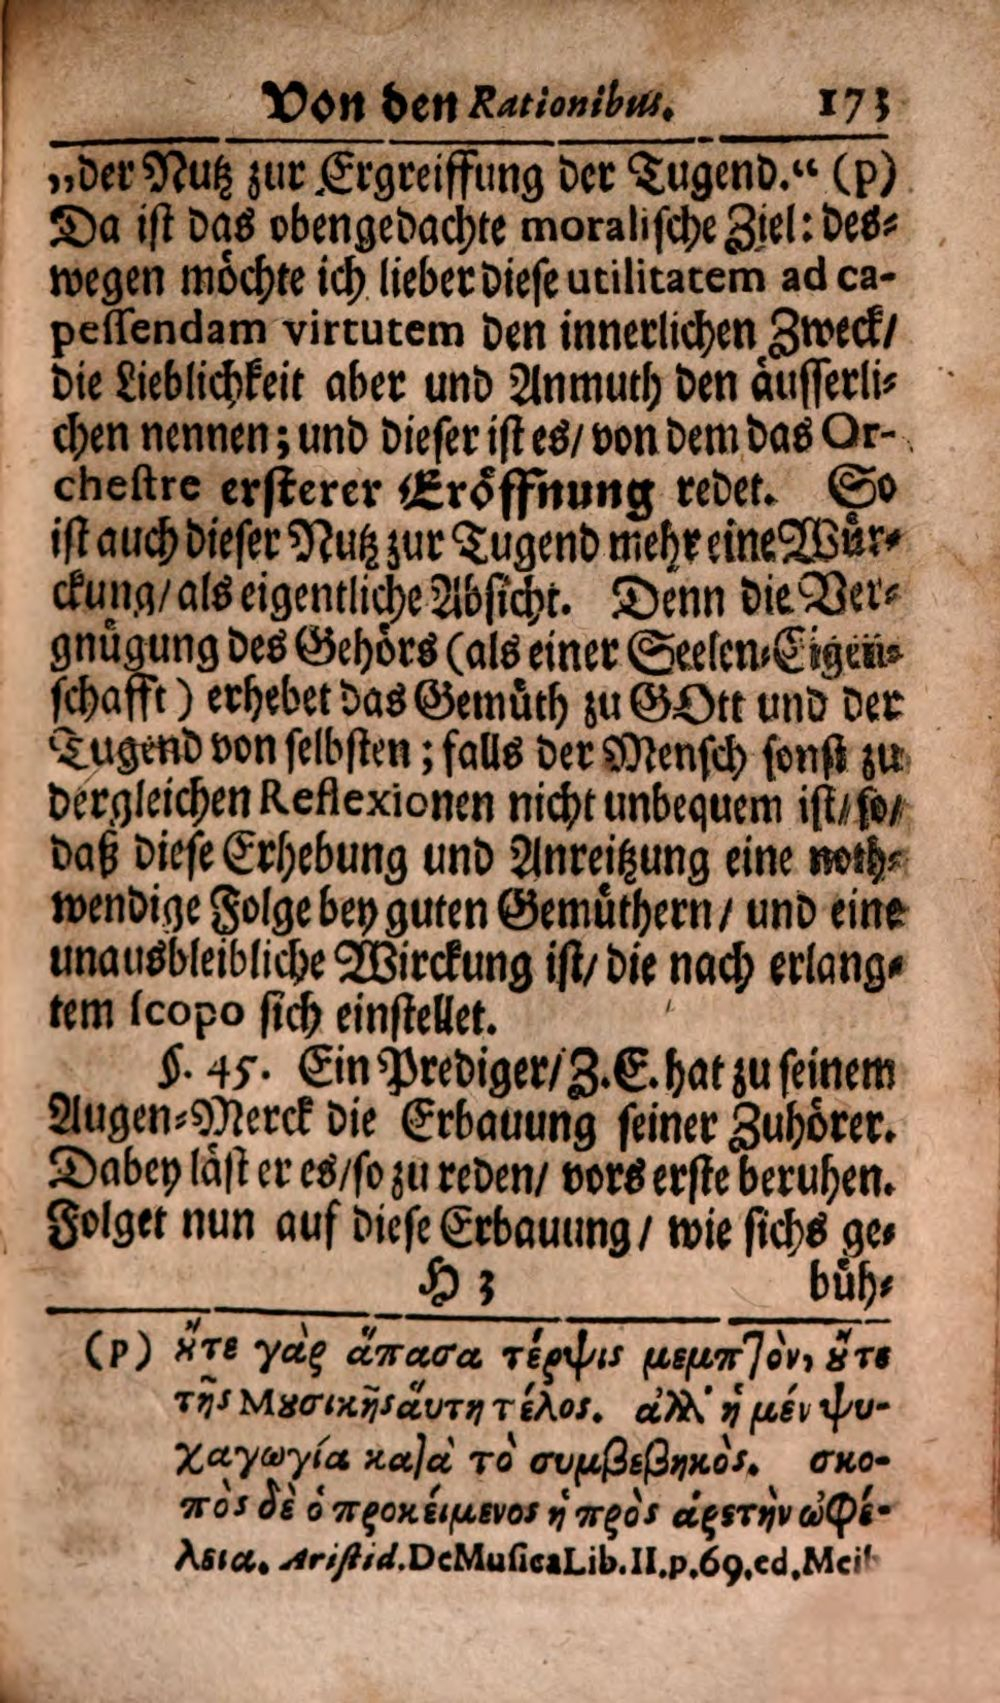 Von den Rationibus. 173
„der Nutz zur Ergreiffung der Tugend.“ (p)
Da ist das obengedachte moralische Ziel: des-
wegen möchte ich lieber diese utilitatem ad ca-
pessendam virtutem den innerlichen Zweck/
die Lieblichkeit aber und Anmuth den äusserli-
chen nennen; und dieser ist es/ von dem das Or-
chestre ersterer Eröffnung redet. So
ist auch dieser Nutz zur Tugend mehr eine Wür-
ckung/ als eigentliche Absicht. Denn die Ver-
gnügung des Gehörs (als einer Seelen-Eigen-
schafft) erhebet das Gemüth zu GOtt und der
Tugend von selbsten; falls der Mensch sonst zu
dergleichen Reflexionen nicht unbequem ist/ so/
daß diese Erhebung und Anreitzung eine noth-
wendige Folge bey guten Gemüthern/ und eine
unausbleibliche Wirckung ist/ die nach erlang-
tem scopo sich einstellet.
§. 45. Ein Prediger/ Z.E. hat zu seinem
Augen-Merck die Erbauung seiner Zuhörer.
Dabey läst er es/ so zu reden/ vors erste beruhen.
Folget nun auf diese Erbauung/ wie sichs ge-
H 3 büh-
(p) ȣ̓́τε γὰρ ἅπασα τέρψις μεμπτὸν, ȣ̓́τε
τῆς Μȣσικῆς ἅυτη τέλος. ἀλλ' ἡ μέν ψυ-
χαγωγία κατὰ τὸ συμβεβηκὸς. σκο-
πὸς δὲ ὁ προκέιμενος ἡ πρὸς ἀρετὴν ὠφέ-
λεια. Aristid. De Musica Lib. II. p. 69. ed. Meib